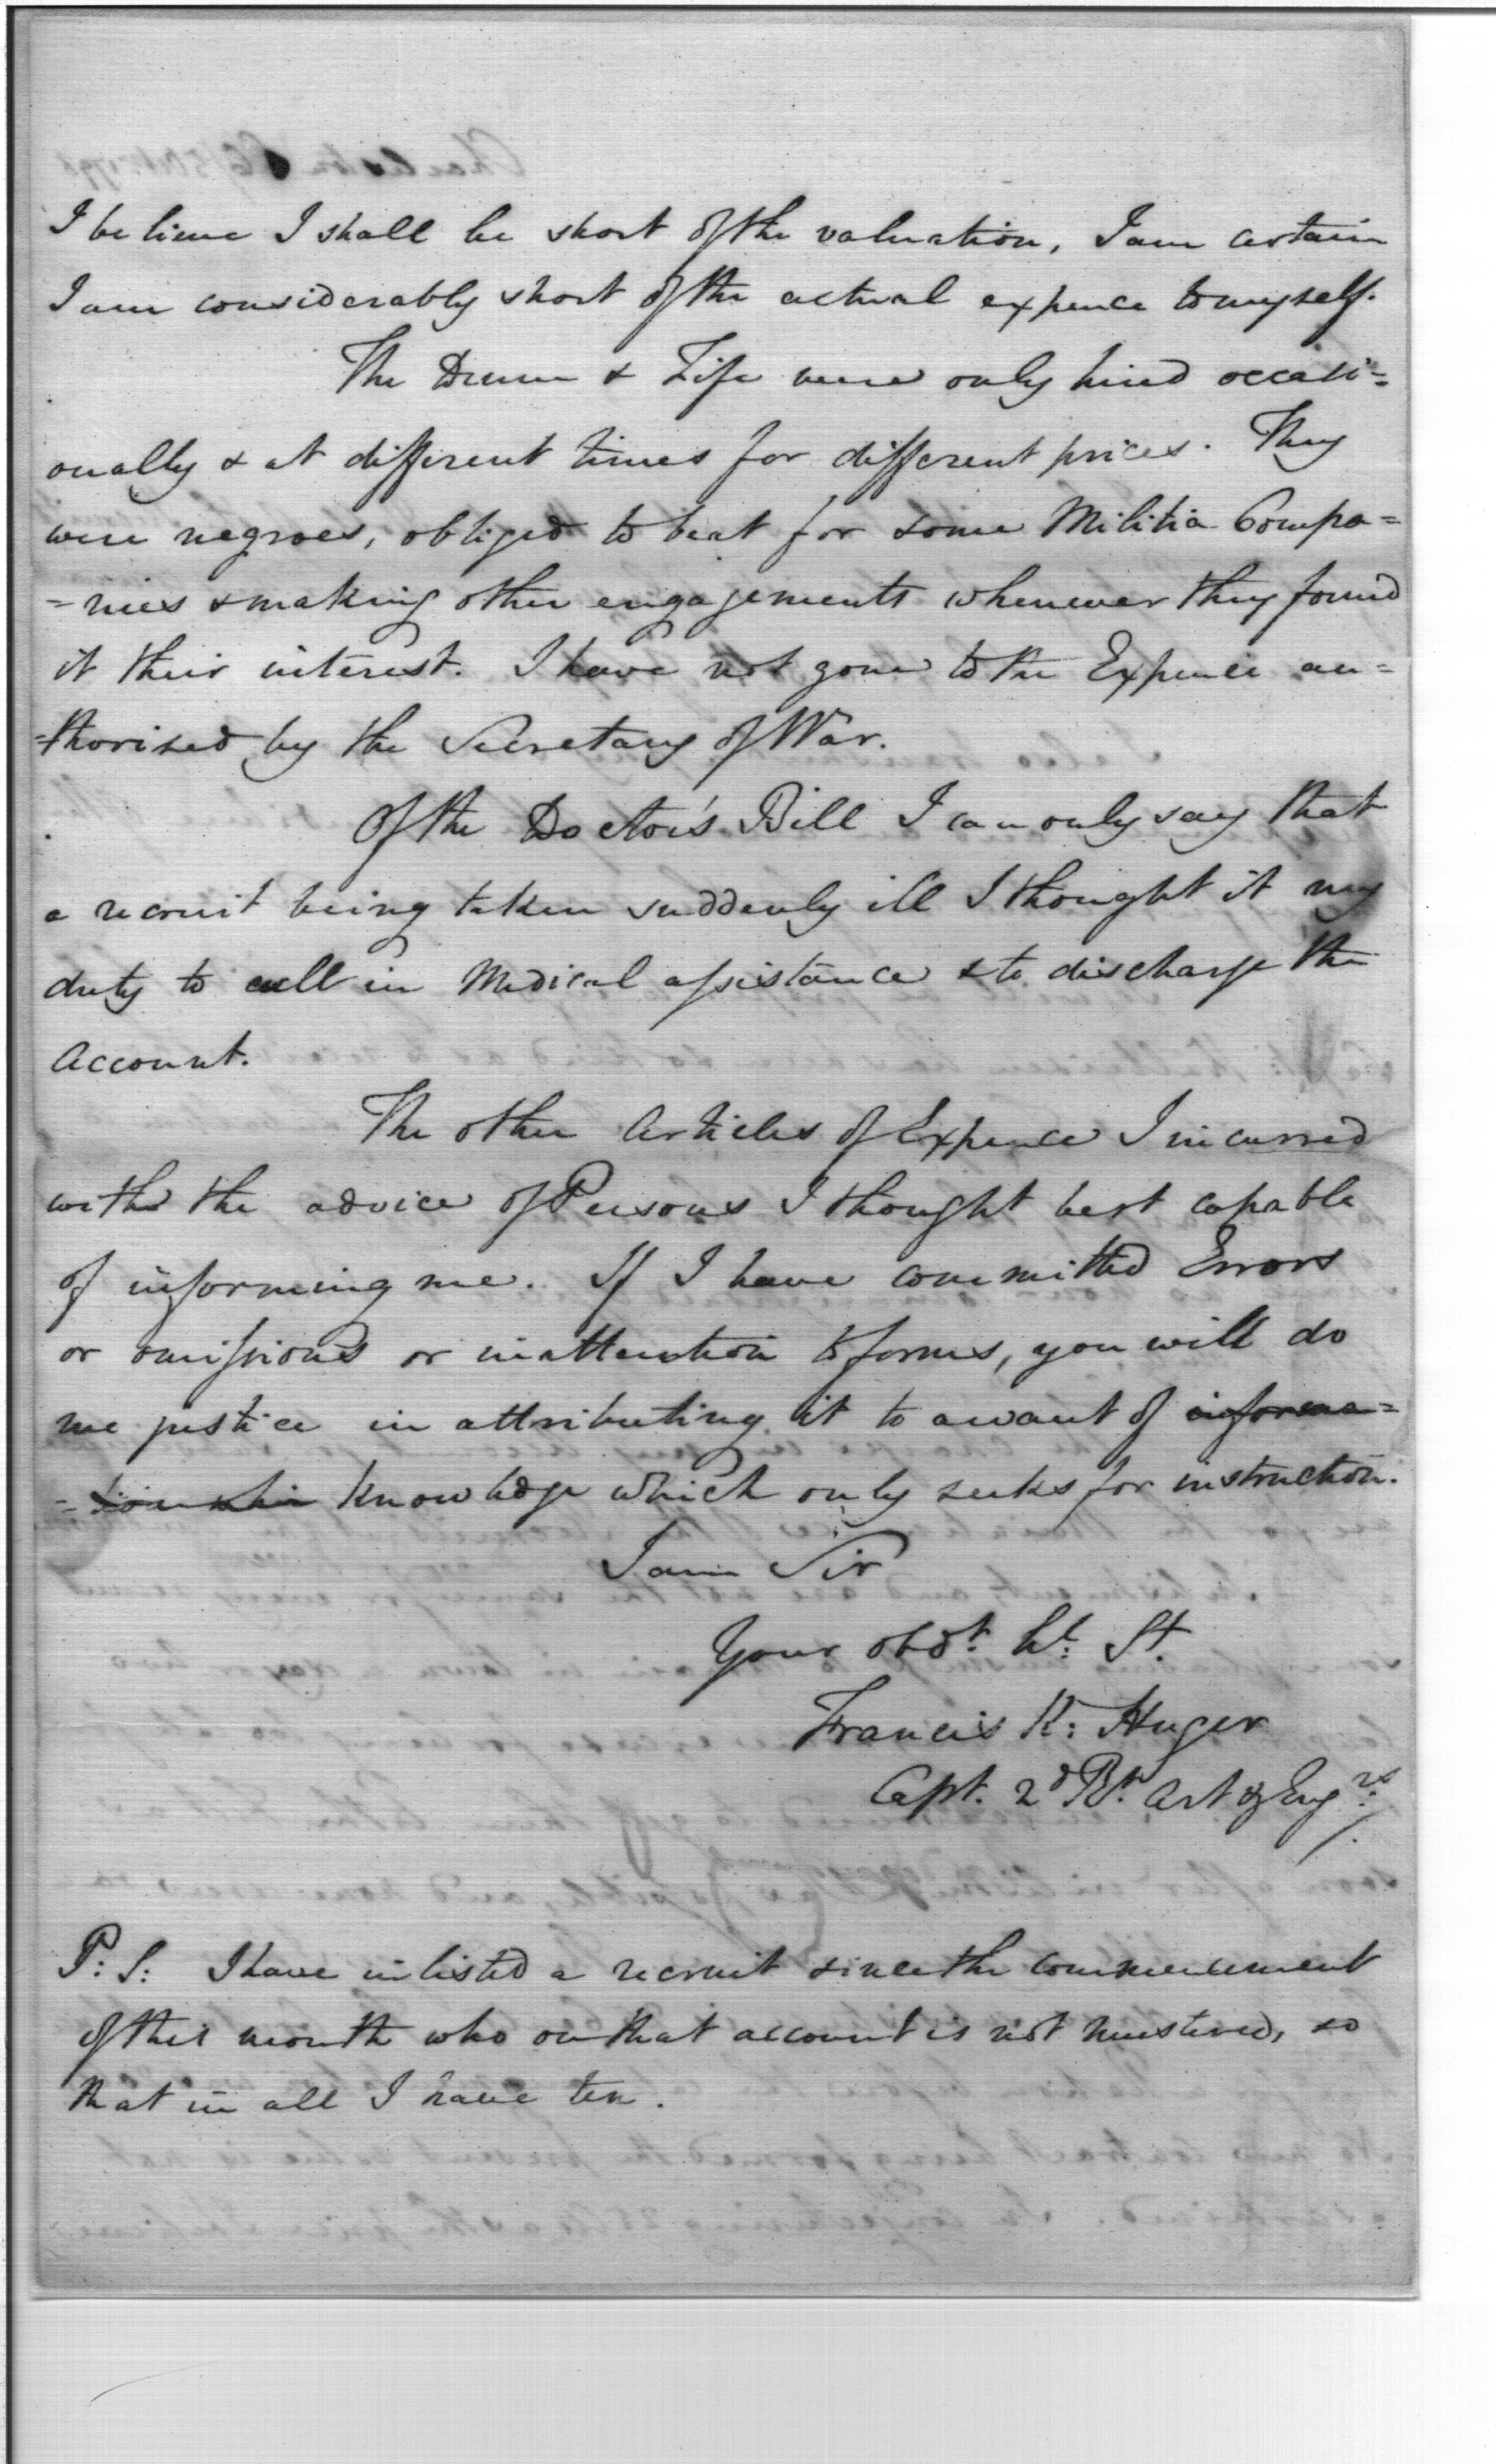 I believe I shall be short of the valuation, I am certain
I am considerably short of the actual expence to myself.
The Drum & Fife were only hired occasi=
onally & at different times for different prices. They
were negroes, obliged to beat for some Militia Compa=
=nies & making other engagements whenever they found
it their interest. I have not gone to the Expence au=
=thorised by the Secretary of War.
Of the Doctor's Bill I can only say that
a recruit being taken suddenly ill I thought it my
duty to call in Medical assistance & to discharge the
Account.
The other Articles of Expence I incurred
with the advice of Persons I thought best capable
of informing me. If I have committed Errors
or omissions or inattention to forms, you will do
me justice in attributing it to a want of informa=
=tion whi knowledge which only seeks for instruction.
I am Sir
Your obdt. hl: St.
Francis K: Huger
Capt. 2d Rt. Art & Engrs.
P: S: I have inlisted a recruit since the commencement
of this month who on that account is not mustered, so
that in all I have ten.